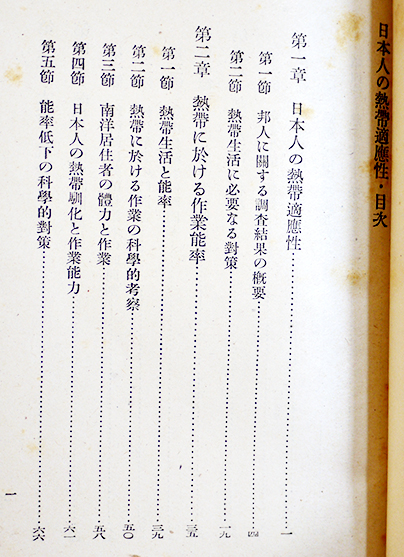 日本人の熱帶適應性・目次
第一章 日本人の熱帶適應性…………一
第一節 邦人に關する調査結果の概要…………四
第二節 熱帶生活に必要なる對策…………一九
第二章 熱帶に於ける作業能率…………三五
第一節 熱帶生活と能率…………三九
第二節 熱帶に於ける作業の科學的考察…………五〇
第三節 南洋居住者の體力と作業…………五八
第四節 日本人の熱帶馴化と作業能力…………六一
第五節 能率低下の科學的對策…………六六
一